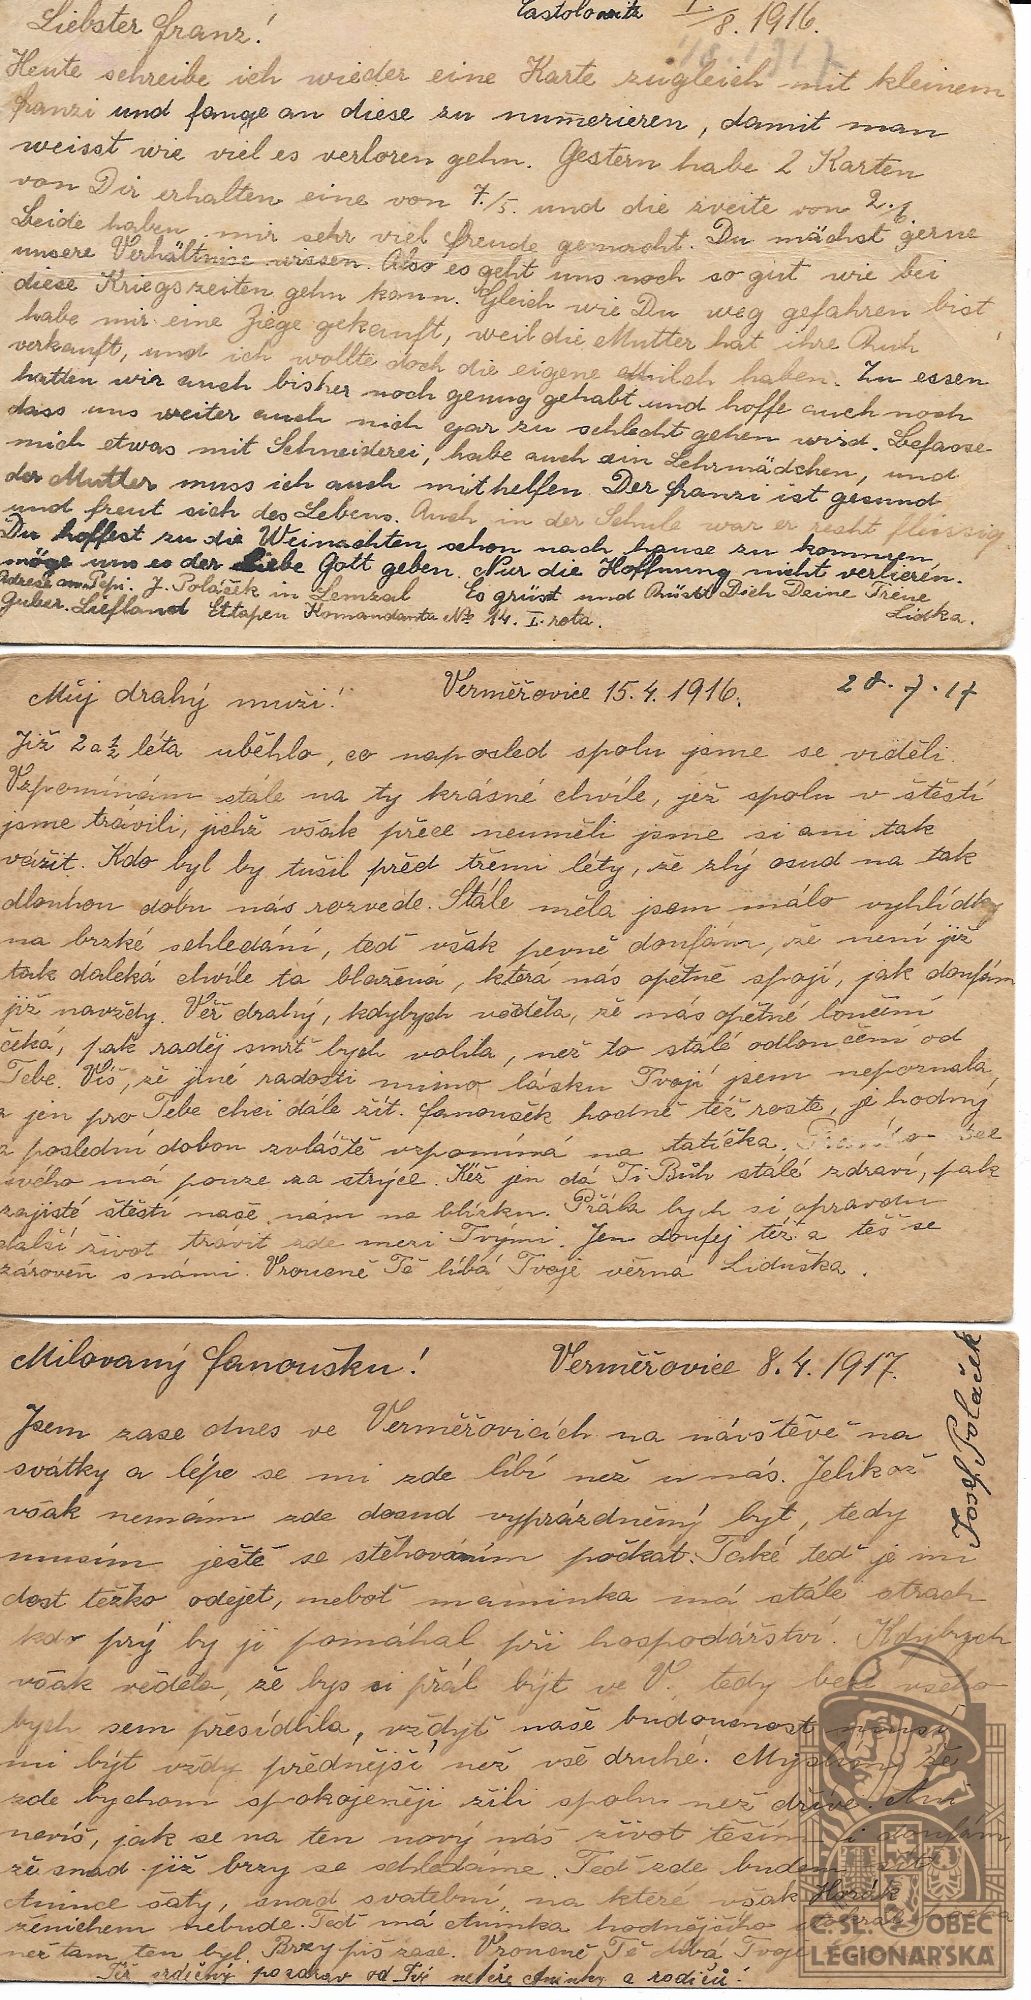 Liebster Franz! Častolowitz 1/8. 1916.
Heute schreibe ich wieder eine Karte zugleich mit kleinem
Franzi und fange an diese zu numerieren, damit man
weisst wie viel es verloren gehn. Gestern habe 2 Karten
von Dir erhalten eine von 7./5. und die zveite von 2./6.
Beide haben mir sehr viel Freude gemacht. Du mächst gerne
unsere Verhältnise wissen. Also es geht uns noch so gut wie bei
diese Kriegszeiten gehn kann. Gleich wie Du weg gefahren bist
habe mir eine Ziege gekauft, weil die Mutter hat ihre Kuh
verkauft, und ich wollte doch die eigene Milch haben. Zu essen
hatten wir auch bisher noch genug gehabt und hoffe auch noch
dass uns weiter auch nich gar zu schlecht gehen wird. Befasse
mich etwas mit Schneiderei, habe auch ein Lehrmädchen, und
der Mutter muss ich auch mithelfen. Der Franzi ist gesund
und freut sich des Lebens. Auch in der Schule war er recht fleissig.
Du hoffest zu die Weinachten schon nach hause zu kommen
möge uns es der liebe Gott geben. Nur die Hoffnung nicht verlieren.
Adresse an Pepi. J. Poláček in Lemzal Es grüst und küsst Dich Deine Treue
Guber. Liefland Ettapen Komandantu No 14. I. rota. Lidka.
Můj drahý muži! Verměřovice 15.4.1916. 28.7.17
Již 2 a ½ léta uběhlo, co naposled spolu jsme se viděli.
Vzpomínám stále na ty krásné chvíle, jež spolu v štěstí
jsme trávili, jichž však přece neuměli jsme si ani tak
vážit. Kdo byl by tušil před třemi léty, že zlý osud na tak
dlouhou dobu nás rozvede. Stále měla jsem málo vyhlídky
na brzké shledání, teď však pevně doufám, že není již
tak daleká chvíle ta blažená, která nás opětně spojí, jak doufám
již navždy. Věř drahý, kdybych věděla, že nás opětné loučení
čeká, pak raděj smrt bych volila, než to stálé odloučení od
Tebe. Víš, že jiné radosti mimo lásku Tvojí jsem nepoznala,
a jen pro Tebe chci dále žít. Fanoušek hodně též roste, je hodný
a poslední dobou zvláště vzpomíná na tatíčka.
svého má pouze za strýce. Kéž jen dá Ti Bůh stálé zdraví, pak
zajisté štěstí naše nám na blízku. Přála bych si opravdu
další život trávit zde mezi Tvými. Jen doufej též a těš se
zároveň s námi. Vroucně Tě líbá Tvoje věrná Liduška.
Milovaný Fanoušku! Verměřovice 8.4.1917.
Josef Poláček
Jsem zase dnes ve Verměřovicích na návštěvě na
svátky a lépe se mi zde líbí než u nás. Jelikož
však nemám zde dosud vyprázdněný byt, tedy
musím ještě se stěhováním počkat. Také teď je mi
dost těžko odejet, neboť maminka má stále strach
kdo prý by jí pomáhal při hospodářství. Kdybych
však věděla, že bys si přál být ve V. tedy beze všeho
bych sem přesídlila, vždyť naše budoucnost musí
mi být vždy přednější než vše druhé. Myslím že
zde bychom spokojeněji žili spolu než dříve. Ani
nevíš, jak se na ten nový náš život těším i doufám,
že snad již brzy se shledáme. Teď zde budem šít
Anince šaty, snad svatební, na které však Horák
ženichem nebude. Teď má Aninka hodnějšího
než tam ten byl. Brzy piš zase. Vroucně Tě líbá Tvoje
Též srdečný pozdrav od Aninky a rodičů!
Č.SL. OBEC
LEGIONÁŘSKÁ